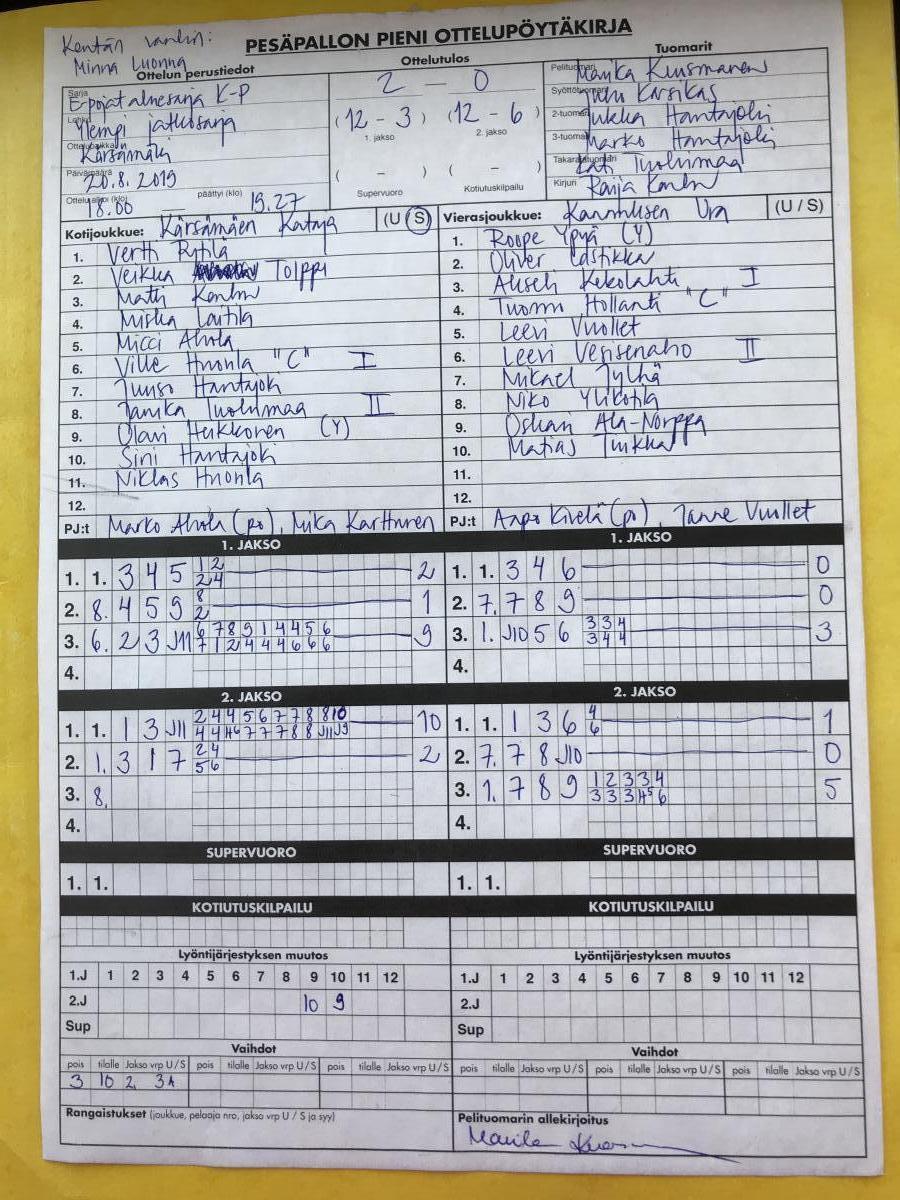 Kentän vanhin:
Minna Luonna
PESÄPALLON PIENI OTTELUPÖYTÄKIRJA
Ottelun perustiedot
Sarja E-pojat aluesarja K-P
Lohko Ylempi jatkosarja
Ottelupaikka Kärsämäki
Päivämäärä 20.8.2019
Ottelu alkoi (klo) 18.00 päättyi (klo) 19.27
Ottelutulos
2 – 0
(12 - 3) (12 - 6)
1. jakso 2. jakso
( - ) ( - )
Supervuoro Kotiutuskilpailu
Tuomarit
Pelituomari Marika Kuusmanen
Syöttötuomari Juho Karsikas
2-tuomari Jukka Hantajoki
3-tuomari Marko Hantajoki
Takarajatuomari Kati Tuohimaa
Kirjuri Raija
Kotijoukkue: Kärsämäen Kataja (U / S)
1. Vertti Rytilä
2. Veikka Tolppi
3. Matti
4. Miska
5. Micci Ahola
6. Ville Huonla "C" I
7. Juuso Hantajoki
8. Janika Tuohimaa II
9. Olavi Heikkonen (Y)
10. Sini Hantajoki
11. Niklas Huonla
12.
PJ:t Marko Ahola (po), Mika Karttunen
Vierasjoukkue: Kannuksen Ura (U / S)
1. Roope Ypyä (Y)
2. Oliver Lastikka
3. Kekolahti I
4. Tuomo Hollanti "C"
5. Leevi Vuollet
6. Leevi Vesisenaho II
7. Mikael Jylhä
8. Niko Ylikotila
9. Oskari Ala-Norppa
10. Matias Tuikka
11.
12.
PJ:t Aapo Kivelä (po), Janne Vuollet
1. JAKSO
1. 1. 3 4 5 1 2 2
2 4
2. 8. 4 5 9 8 1
2
3. 6. 2 3 J11 6 7 8 9 1 4 4 5 6 9
7 1 2 4 4 4 6 6 6
4.
1. JAKSO
1. 1. 3 4 6 0
2. 7. 7 8 9 0
3. 1. J10 5 6 3 3 4 3
3 4 4
4.
2. JAKSO
1. 1. 1 3 J11 2 4 4 5 6 7 7 8 8 10 10
4 4 H6 7 7 7 8 8 J11 J9
2. 1. 3 1 7 2 4 2
5 6
3. 8.
4.
2. JAKSO
1. 1. 1 3 6 4 1
6
2. 7. 7 8 J10 0
3. 1. 7 8 9 1 2 3 3 4 5
3 3 3 H5 6
4.
SUPERVUORO
1. 1.
SUPERVUORO
1. 1.
KOTIUTUSKILPAILU
KOTIUTUSKILPAILU
Lyöntijärjestyksen muutos
1.J 1 2 3 4 5 6 7 8 9 10 11 12
2.J 10 9
Sup
Lyöntijärjestyksen muutos
1.J 1 2 3 4 5 6 7 8 9 10 11 12
2.J
Sup
Vaihdot
pois tilalle Jakso vrp U / S pois tilalle Jakso vrp U / S pois tilalle Jakso vrp U / S
3 10 2 3A
Vaihdot
pois tilalle Jakso vrp U / S pois tilalle Jakso vrp U / S pois tilalle Jakso vrp U / S
Rangaistukset (joukkue, pelaaja nro, jakso vrp U / S ja syy)
Pelituomarin allekirjoitus